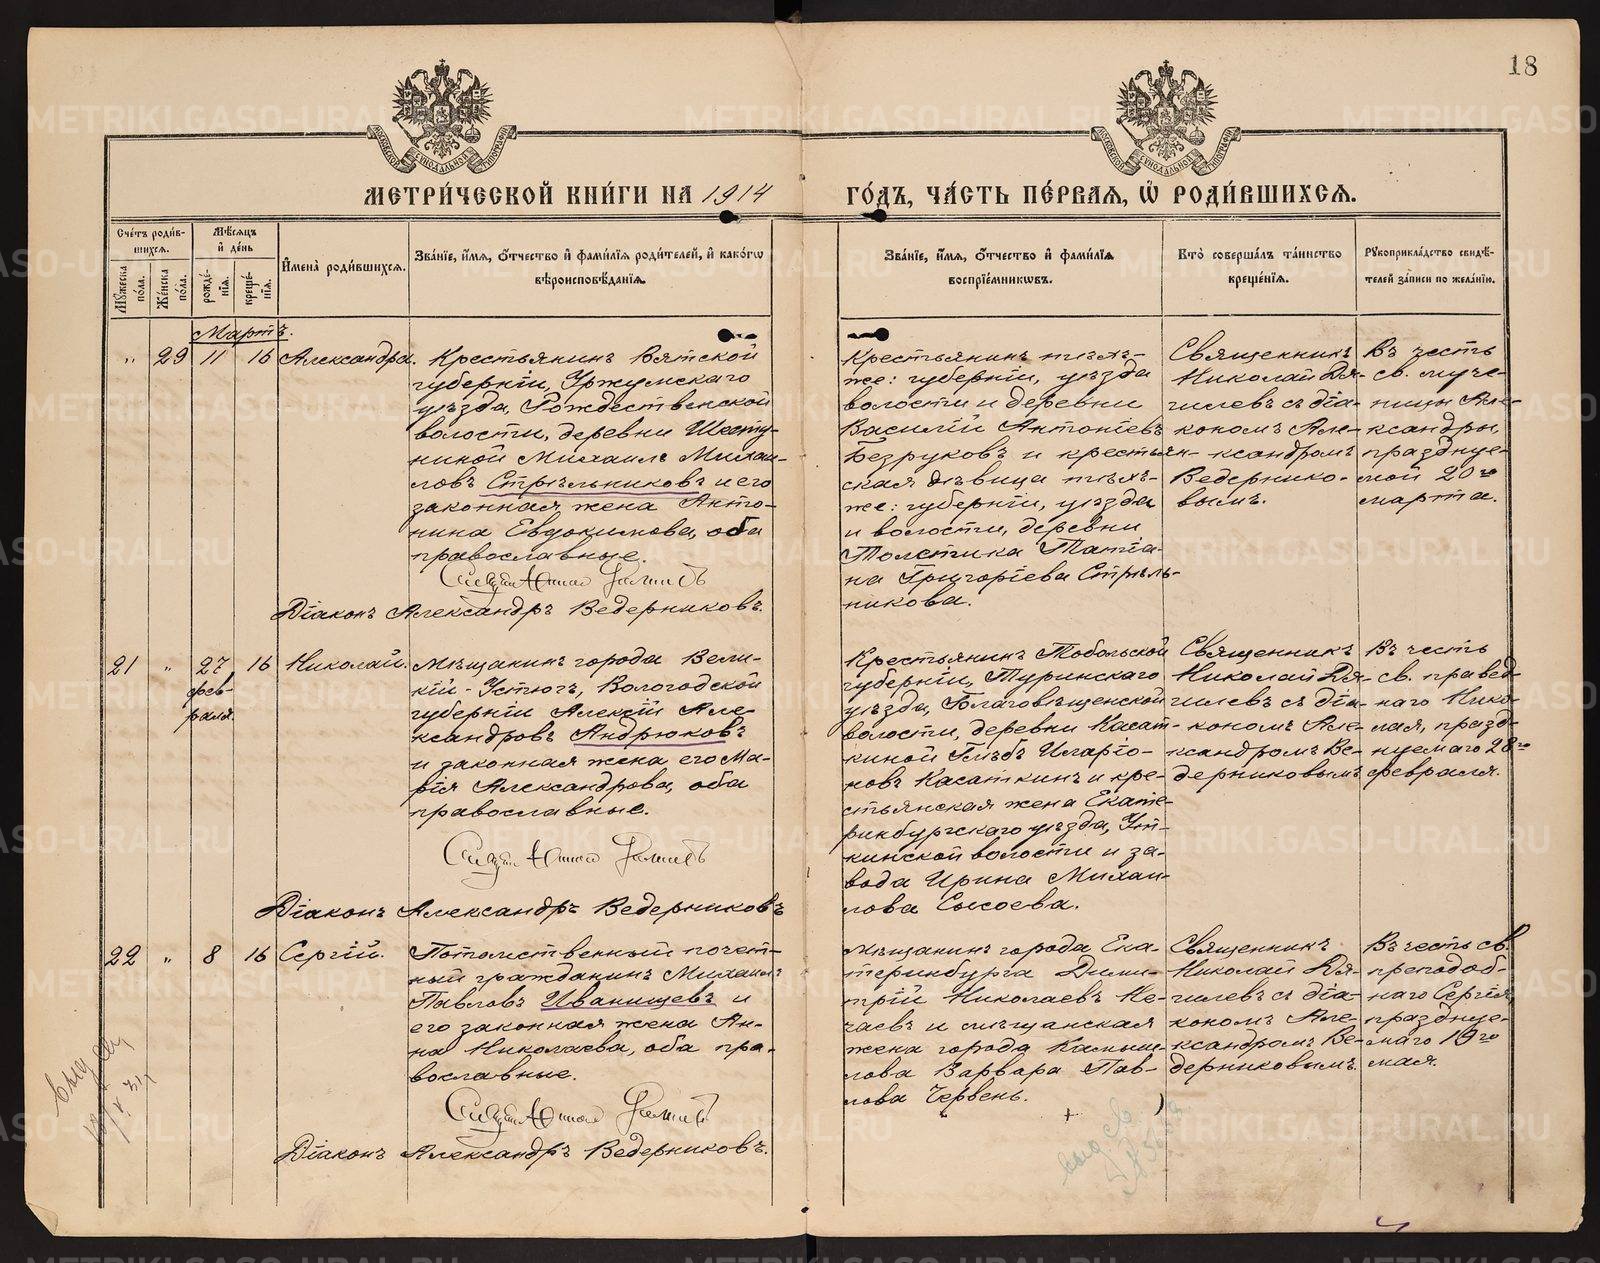 18
МЕТРИЧЕСКОЙ КНИГИ НА 1914
ГОДЪ, ЧАСТЬ ПЕРВАЯ, Ѿ РОДИВШИХСЯ.
Счетъ родив-
шихся.
Мужеска пола.
Женска пола.
Мѣсяцъ
и день
рожде-
нія.
креще-
нія.
Имена родившихся.
Званіе, имя, отчество и фамилія родителей, и какогѡ
вѣроисповѣданія.
Званіе, имя, отчество и фамилія
воспріемникѡвъ.
Кто совершалъ таинство
крещенія.
Рукоприкладство свидѣ-
телей записи по желанію.
Мартъ.
„ 29 11 16 Александра.
Крестьянинъ Вятской
губерніи, Уржумскаго
уѣзда, Рождественской
волости, деревни Шесту-
никой Михаилъ Михаи-
ловъ Стрѣльниковъ и его
законная жена Анто-
нина Евдокимова, оба
православные.
Діаконъ Александръ Ведерниковъ.
Крестьянинъ тѣхъ-
же: губерніи, уѣзда
волости и деревни
Василій Антоніевъ
Безруковъ и крестьян-
ская дѣвица тѣхъ-
же: губерніи, уѣзда
и волости, деревни
Толстика Татіа-
на Григоріева Стрѣль-
никова.
Священникъ
Николай Дя-
гилевъ съ діа-
кономъ Але-
ксандромъ
Ведернико-
вымъ.
Въ честь
св. муче-
ницы Але-
ксандры
праздnуе-
мой 20го
марта.
21 „ 27 16 Николай.
фев-
раля.
Мѣщанинъ города Вели-
кій-Устюгъ, Вологодской
губерніи Алексій Але-
ксандровъ Андрюковъ
и законная жена его Ма-
рія Александрова, оба
православные.
Діаконъ Александръ Ведерниковъ
Крестьянинъ Тобольской
губерніи, Туринскаго
уѣзда, Благовѣщенской
волости, деревни Касат-
киной Глѣбъ Иларіо-
новъ Касаткинъ и кре-
стьянская жена Екате-
ринбургскаго уѣзда, Ут-
кинской волости и за-
вода Ирина Михаи-
лова Сысоева.
Священникъ
Николай Дя-
гилевъ съ діа-
кономъ Але-
ксандромъ Ве-
дерниковымъ
Въ честь
св. правед-
наго Нико-
лая, празд-
нуемаго 28го
февраля.
22 „ 8 16 Сергій.
Потомственный почет-
ный гражданинъ Михаилъ
Павловъ Иванищевъ и
его законная жена Ан-
на Николаева, оба пра-
вославные.
Діаконъ Александръ Ведерниковъ.
Мѣщанинъ города Ека-
теринбурга Дими-
трій Николаевъ Не-
чаевъ и мѣщанская
жена города Камыш-
лова Варвара Пав-
лова Червень.
Священникъ
Николай Дя-
гилевъ съ діа-
кономъ Але-
ксандромъ Ве-
дерниковымъ.
Въ честь св.
преподоб-
наго Сергія,
празднуе-
маго 19го
мая.